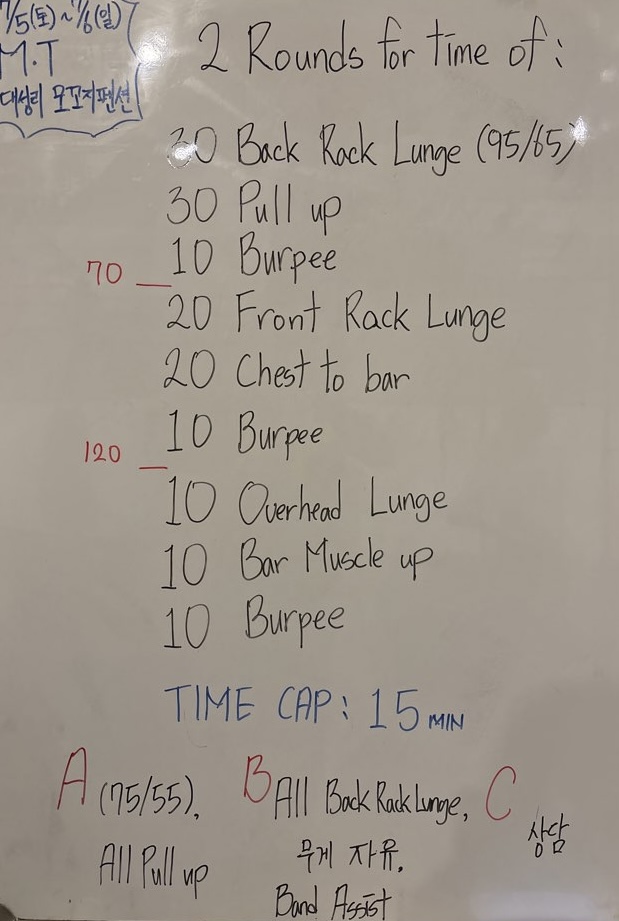 7/5(토)~7/6(일)
M.T
대성리 모꼬지펜션
2 Rounds for time of:
30 Back Rack Lunge (95/65)
30 Pull up
10 Burpee
70
20 Front Rack Lunge
20 Chest to bar
10 Burpee
120
10 Overhead Lunge
10 Bar Muscle up
10 Burpee
TIME CAP: 15 MIN
A (75/55),
All Pull up
B All Back Rack Lunge,
무게 자유,
Band Assist
C 상담